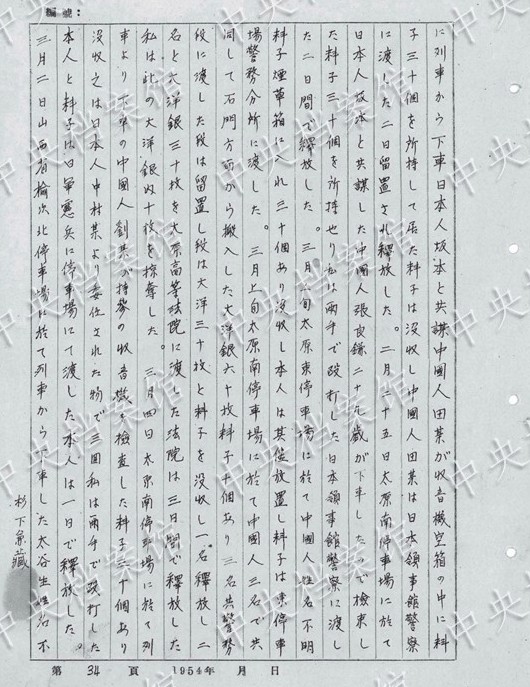 編號：
に列車から下車日本人坂本と共謀中國人田某が收音機空箱の中に料
子三十個を所持して居た料子は沒收し中國人田某は日本領事館警察
に渡した二日留置され釋放した。二月二十五日太原南停車場に於て
日本人坂本と共謀した中國人張良鎌二十九歲が下車したので檢束し
た料子三十個を所持せり私は両手で毆打した日本領事館警察に渡し
た二日間で釋放した。三月 旬太原東停車場に於て中國人姓名不明
料子煙草箱に入れ三十個あり沒收し本人は其儘放置し料子は東停車
場警務分所に渡した。三月上旬太原南停車場に於て中國人三名で共
同して石門方面から搬入した大洋銀六十枚料子十個あり三名共警務
段に渡した段は留置し段は大洋三十枚と料子を沒收し一名釋放し二
名と大洋銀三十枚を太原高等法院に渡した法院は三日間で釋放した
私は此の大洋銀内十枚を掠奪した。三月四日太原南停車場に於て列
車より下車の中國人劉某が持參の收音機を檢查した料子三十個あり
沒收之は日本人中村某より委任された物で三回私は両手で毆打した
本人と料子は日軍憲兵に停車場にて渡した本人は一日で釋放した。
三月二日山西省榆次北停車場に於て列車から下車した太谷生姓名不
杉下 藏
中央档案馆
第 34 頁 1954年 月 日